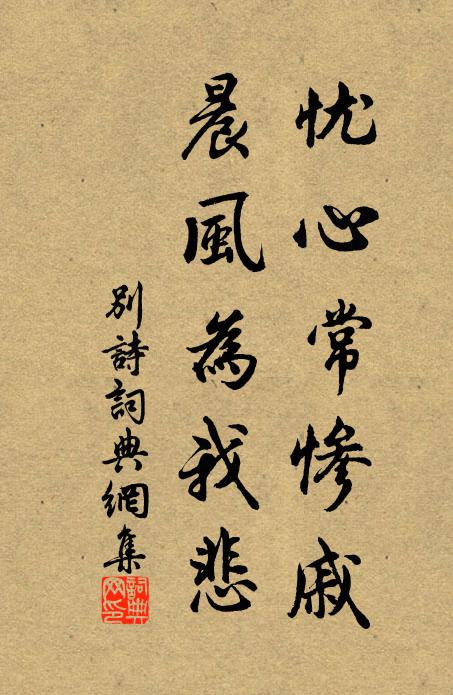 忧心常惨戚
晨風為我悲
别詩詞典網集
詞典
网印